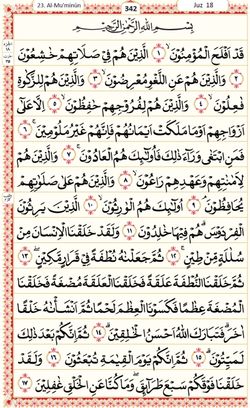 23. Al-Mu'minūn 342 Juz 18
بِسْمِ اللَّهِ الرَّحْمَٰنِ الرَّحِيمِ
قَدْ أَفْلَحَ الْمُؤْمِنُونَ ١ الَّذِينَ هُمْ فِي صَلَاتِهِمْ خَاشِعُونَ
٢ وَالَّذِينَ هُمْ عَنِ اللَّغْوِ مُعْرِضُونَ ٣ وَالَّذِينَ هُمْ لِلزَّكَاةِ
فَاعِلُونَ ٤ وَالَّذِينَ هُمْ لِفُرُوجِهِمْ حَافِظُونَ ٥ إِلَّا عَلَىٰ
أَزْوَاجِهِمْ أَوْ مَا مَلَكَتْ أَيْمَانُهُمْ فَإِنَّهُمْ غَيْرُ مَلُومِينَ ٦
فَمَنِ ابْتَغَىٰ وَرَاءَ ذَٰلِكَ فَأُولَٰئِكَ هُمُ الْعَادُونَ ٧ وَالَّذِينَ هُمْ
لِأَمَانَاتِهِمْ وَعَهْدِهِمْ رَاعُونَ ٨ وَالَّذِينَ هُمْ عَلَىٰ صَلَوَاتِهِمْ
يُحَافِظُونَ ٩ أُولَٰئِكَ هُمُ الْوَارِثُونَ ١٠ الَّذِينَ يَرِثُونَ
الْفِرْدَوْسَ هُمْ فِيهَا خَالِدُونَ ١١ وَلَقَدْ خَلَقْنَا الْإِنْسَانَ مِنْ
سُلَالَةٍ مِنْ طِينٍ ١٢ ثُمَّ جَعَلْنَاهُ نُطْفَةً فِي قَرَارٍ مَكِينٍ ١٣
ثُمَّ خَلَقْنَا النُّطْفَةَ عَلَقَةً فَخَلَقْنَا الْعَلَقَةَ مُضْغَةً فَخَلَقْنَا
الْمُضْغَةَ عِظَامًا فَكَسَوْنَا الْعِظَامَ لَحْمًا ثُمَّ أَنْشَأْنَاهُ خَلْقًا
آخَرَ فَتَبَارَكَ اللَّهُ أَحْسَنُ الْخَالِقِينَ ١٤ ثُمَّ إِنَّكُمْ بَعْدَ ذَٰلِكَ
لَمَيِّتُونَ ١٥ ثُمَّ إِنَّكُمْ يَوْمَ الْقِيَامَةِ تُبْعَثُونَ ١٦ وَلَقَدْ
خَلَقْنَا فَوْقَكُمْ سَبْعَ طَرَائِقَ وَمَا كُنَّا عَنِ الْخَلْقِ غَافِلِينَ ١٧